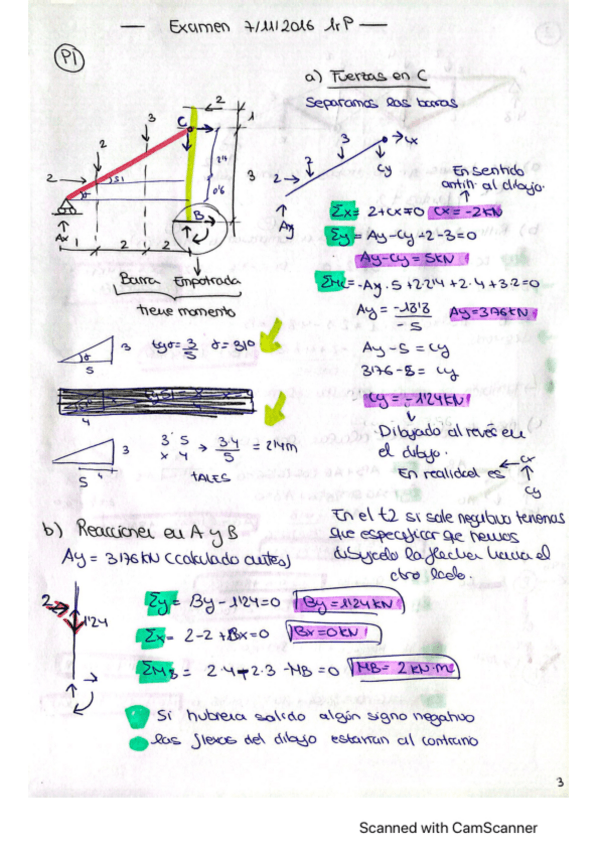 Examen 7/11/2016 1rP
P1
a) Fuerzas en C
Separamos las barras
2
C
1
3
2
2
3
2'4
0'6
B
Ax
1
2
2
Barra Empotrada
tiene momento
3
2
2
Cx
Cy
Ay
En sentido
antih. al dibujo.
Σx= 2+Cx=0 Cx=-2KN
Σy= Ay-Cy+2-3=0
Ay-Cy=5KN
ΣMc=-Ay·5+2·2'4+2·4+3·2=0
Ay= -18'8 / -5 Ay=3'76KN
Ay-5=Cy
3'76-5=Cy
Cy=-1'24KN
Dibujado al revés en
el dibujo.
En realidad es
Cx
Cy
3
5
tgσ=3/5 σ=310
4
3
5
4
3 5
x 4
→ 3·4/5 = 2'4m
TALES
En el t2 si sale negativo tenemos
que especificar que hemos
dibujado la flecha hacia el
otro lado.
b) Reacciones en A y B
Ay = 3'76KN (calculado antes)
2
1'24
Σy= By-1'24=0 By=1'24KN
Σx= 2-2+Bx=0 Bx=0KN
ΣMB = 2·4-2·3-MB=0 MB=2KN·m
Si hubiera salido algún signo negativo
las flexas del dibujo estarían al contrario
3
Scanned with CamScanner